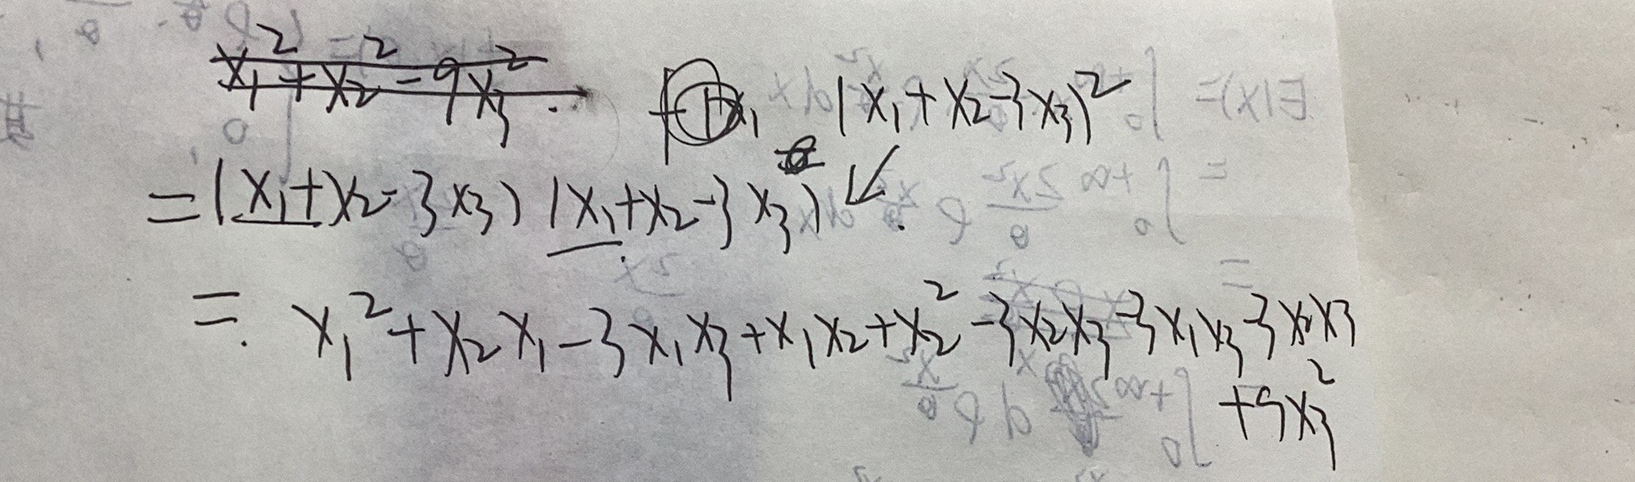 x₁² + x₂² - 9x₃² (x₁ + x₂ - 3x₃)²
= (x₁ + x₂ - 3x₃) (x₁ + x₂ - 3x₃)
= x₁² + x₂x₁ - 3x₁x₃ + x₁x₂ + x₂² - 3x₂x₃ - 3x₁x₃ - 3x₂x₃
+ 9x₃²